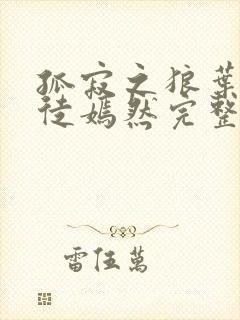 孤寂之狼葉
徒嫣然完整
雷伍萬